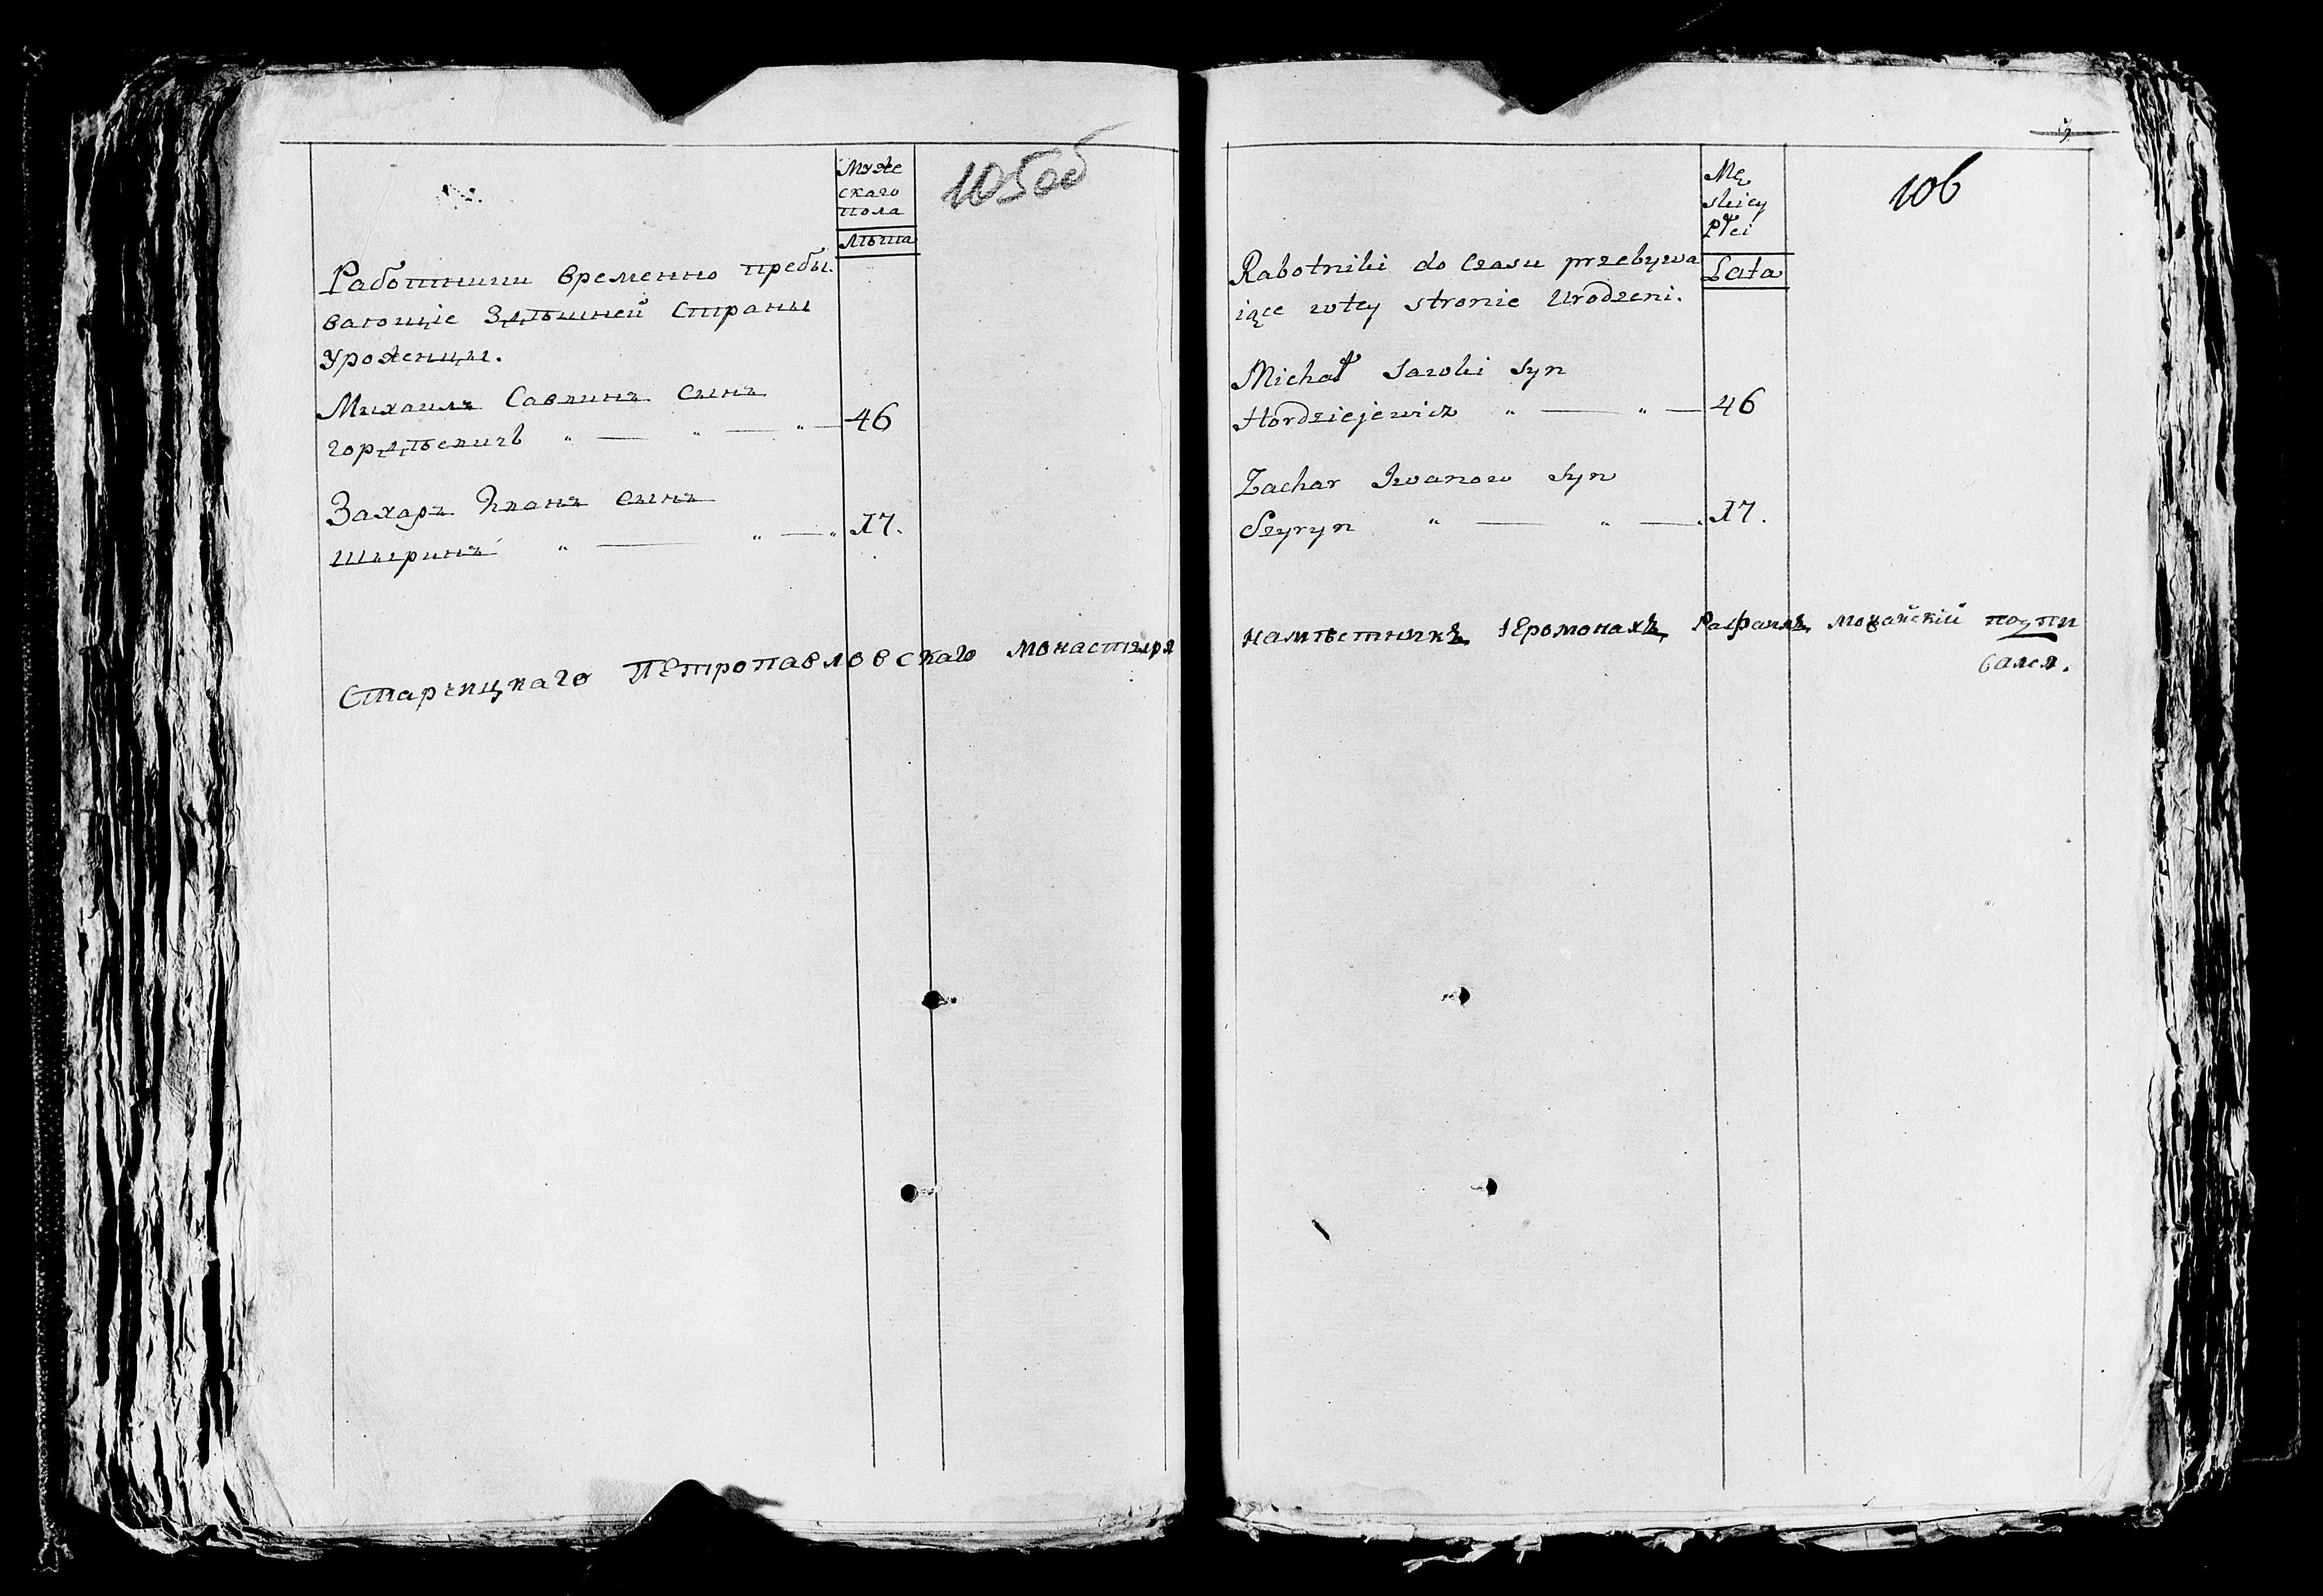 Муже
скаго
пола
Лѣта
105об
Работники временно пребы-
вающіе Здѣшней Страны
Уроженцы.
Михаилъ Савкинъ сынъ
Гордѣевичъ " — " — " — 46
Захаръ Иванъ сынъ
Шыринъ " — " — " 17.
Старчицкаго Петропавловскаго монастыря
Mę
skiey
Płci
Lata
106
Rabotniki do Czasu przebywa
iące wtey stronie Urodzeni.
Michał Sawki Syn
Hordziejewicz " — " — 46
Zachar Iwanow Syn
Szyryn " — " — 17.
намѣстникъ Іеромонахъ Рафаилъ Можайскій подпи
сался.